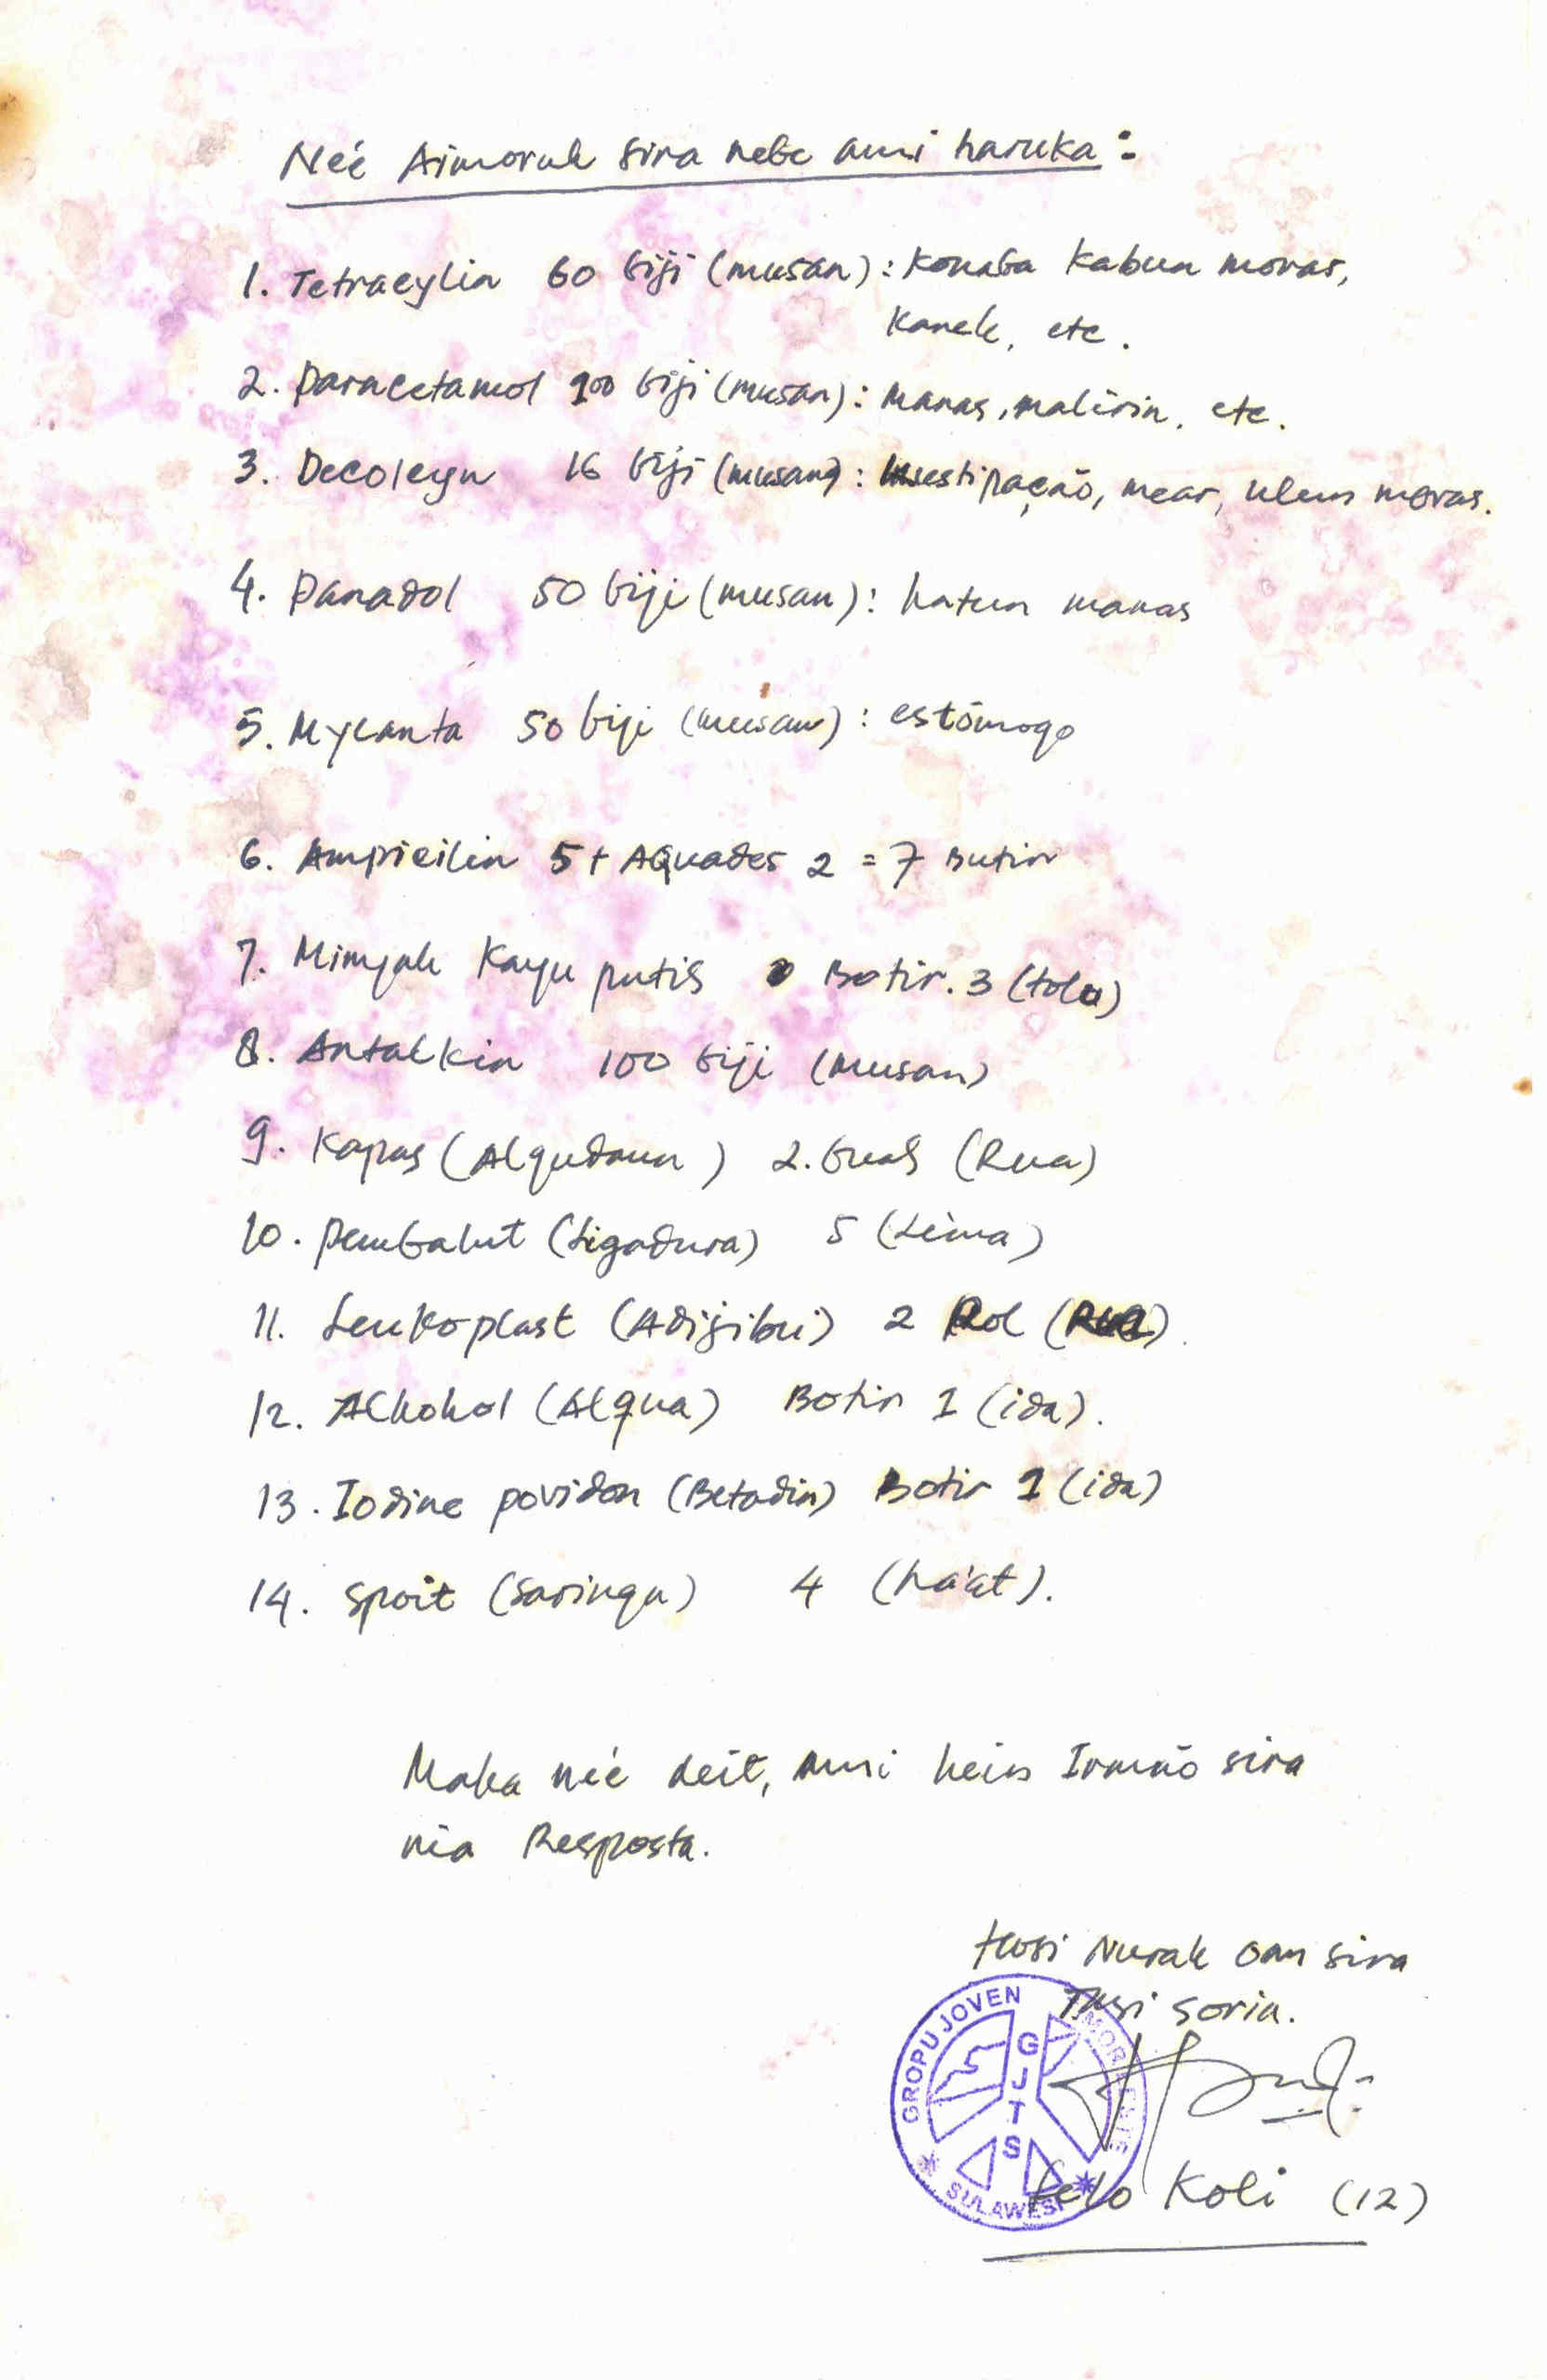 Neé Aimoruk sira nebe ami haruka:
1. Tetracylin 60 biji (musan): Konaba Kabun moras,
Kanek, etc.
2. paracetamol 100 biji (musan): manas, malirin, etc.
3. Decolgyn 16 biji (musan): Insestipação, mear, ulun moras.
4. panadol 50 biji (musan): hatun manas
5. Mylanta 50 biji (musan): estômogo
6. Ampicilin 5 + AQuades 2 = 7 Butir
7. Minyak Kayu putih Botir. 3 (tolu)
8. Antalkin 100 biji (musan)
9. Kapas (Algudaun) 2. buah (Rua)
10. pembalut (Ligadura) 5 (Lima)
11. Leukoplast (Adijibu) 2 Rol (Rua).
12. Alkohol (Alqua) Botir 1 (ida).
13. Iodine povidon (Betadin) Botir 1 (ida)
14. spoit (Saringa) 4 (ha'at).
Maka neé deit, ami hein Irmão sira
nia Resposta.
Husi Nurak Oan sira
Tasi Sorin.
GROPU JOVEN TIMOR
GJTS
SULAWESI
Koli (12)